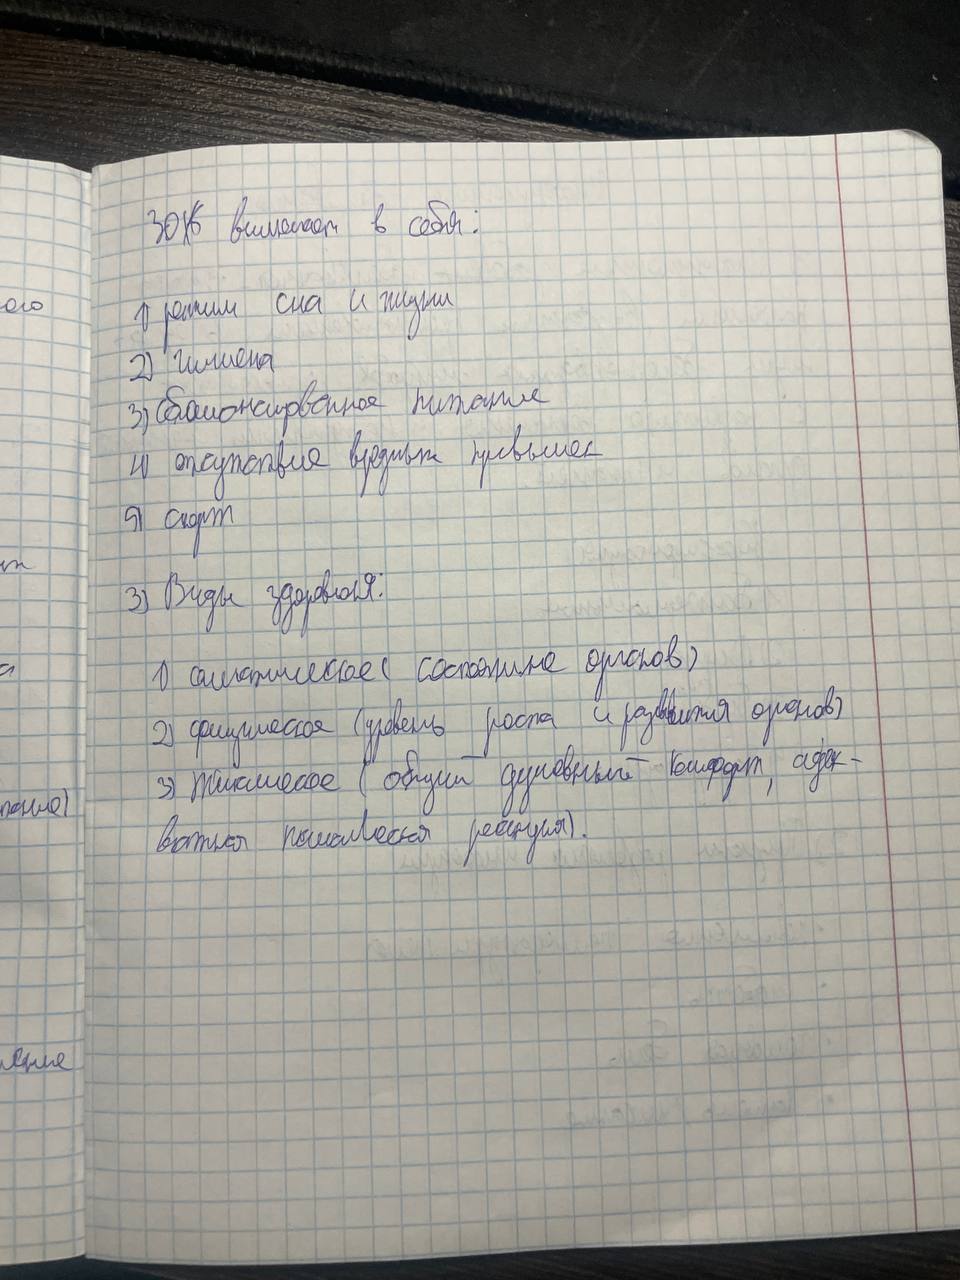 ЗОЖ включает в себя:
1) режим сна и жизни
2) гигиена
3) сбалансированное питание
4) отсутствие вредных привычек
5) спорт
3) Виды здоровья:
1) соматическое (состояние органов)
2) физическое (уровень роста и развития органов)
3) психическое (общий духовный комфорт, адек-
ватная поведенческая реакция).